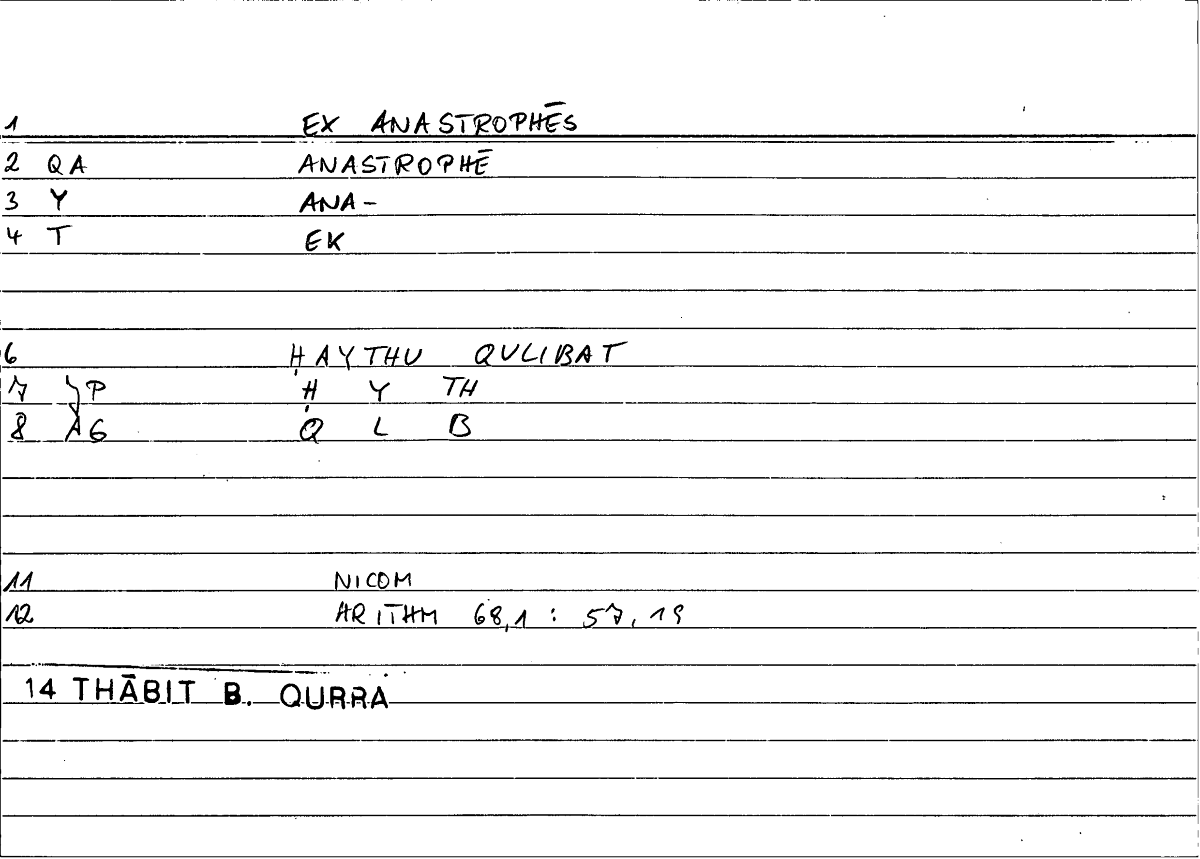 1 EX ANASTROPHĒS
2 QA ANASTROPHĒ
3 Y ANA-
4 T EK
6 ḤAYTHU QULIBAT
7 P Ḥ Y TH
8 AG Q L B
11 NICOM
12 ARITHM 68,1 : 57,19
14 THĀBIT B. QURRA